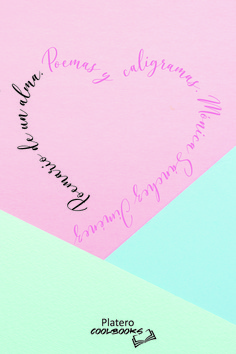 Poemario de un alma.
Poemas y caligramas.
Mónica Sánchez Jiménez
Platero
COOLBOOKS